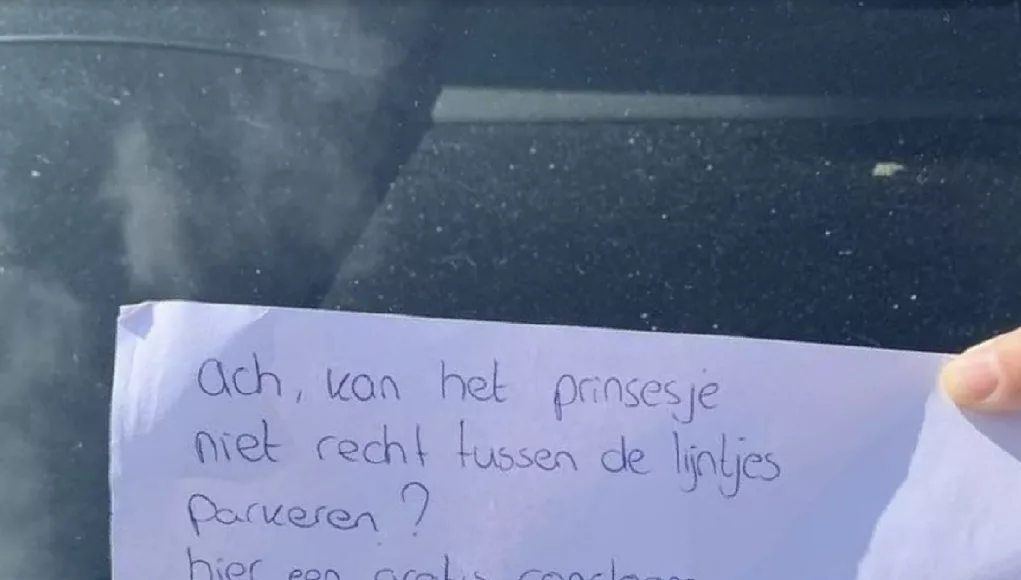 Ach, kan het prinsesje
niet recht tussen de lijntjes
parkeren?
hier een gratis condoom